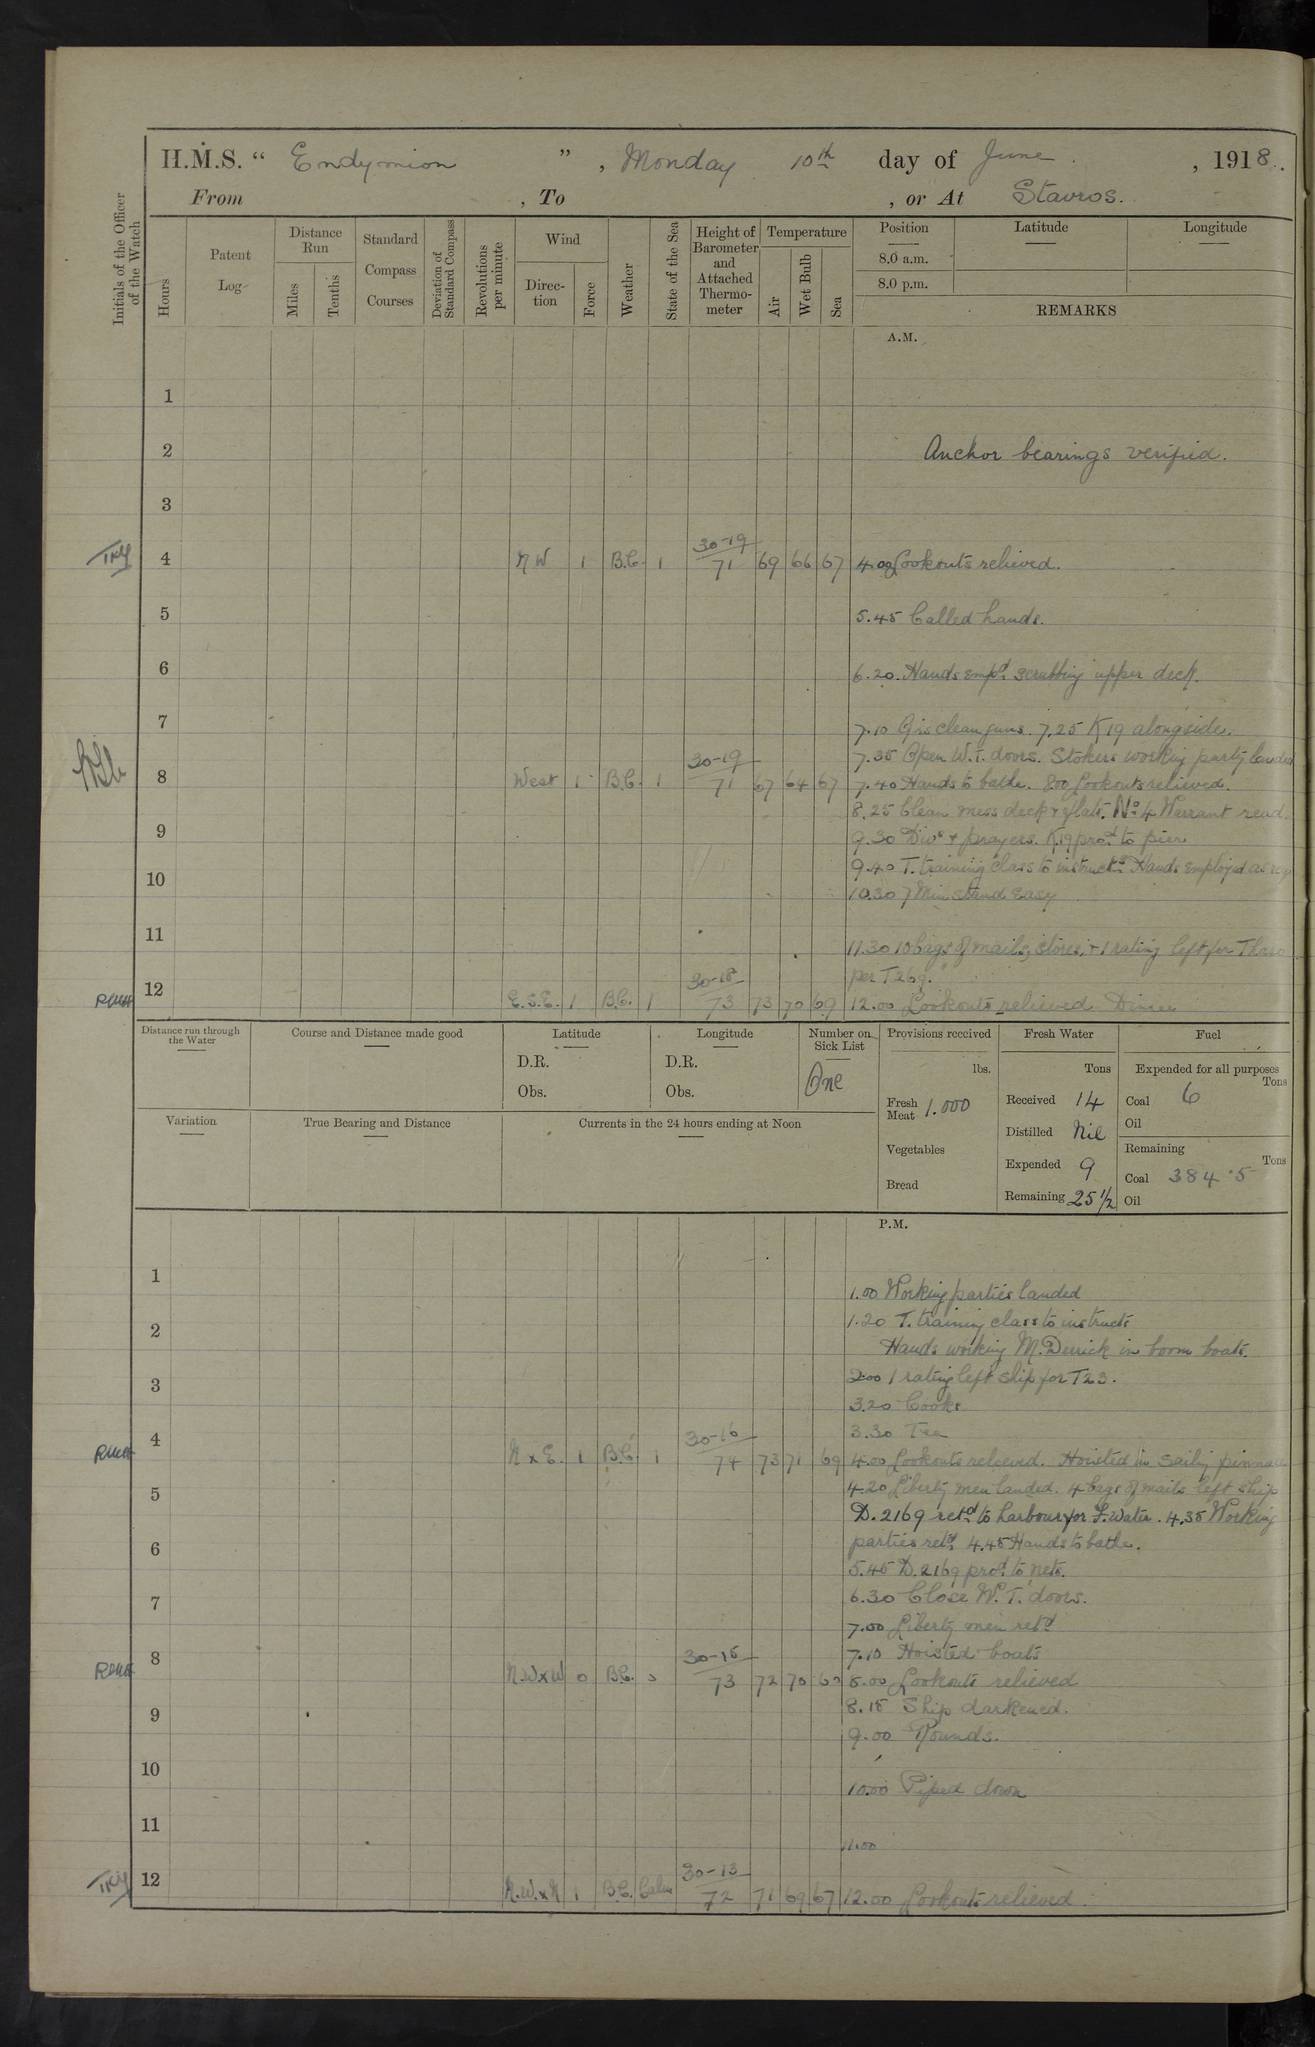 H.M.S. “ Endymion ” , Monday 10th day of June , 1918.
From , To , or At Stavros.
Initials of the Officer of the Watch
Hours
Patent Log
Distance Run
Miles
Tenths
Standard Compass Courses
Deviation of Standard Compass
Revolutions per minute
Wind
Direction
Force
Weather
State of the Sea
Height of Barometer and Attached Thermometer
Temperature
Air
Wet Bulb
Sea
Position
8.0 a.m.
8.0 p.m.
Latitude
Longitude
REMARKS
A.M.
1
2 Anchor bearings verified.
3
30-19
4 N W 1 B.C. 1 71 69 66 67 4.00 Lookouts relieved.
5 5.45 Called hands.
6 6.20. Hands empd. scrubbing upper deck.
7 7.10 Qrs clean guns. 7.25 K19 alongside.
30-19 7.35 Open W.T. doors. Stokers working party landed
8 West 1 B.C. 1 71 67 64 67 7.40 Hands to bathe. 8.00 Lookouts relieved.
8.25 Clean mess deck & flats. No. 4 Warrant read.
9 9.30 Divs & prayers. K19 procd. to pier
9.40 T. training class to instructn. Hands employed as req
10 10.30 7 Min stand easy
11 11.30 10 bags of mails, stores, & 1 rating left for Thaso
30-18 per T269.
12 E.S.E. 1 B.C. 1 73 73 70 69 12.00 Lookouts relieved Dinner
Distance run through the Water
Course and Distance made good
Latitude
D.R.
Obs.
Longitude
D.R.
Obs.
Number on Sick List
One
Provisions received
lbs.
Fresh Meat 1.000
Vegetables
Bread
Fresh Water
Tons
Received 14
Distilled Nil
Expended 9
Remaining 25 1/2
Fuel
Expended for all purposes
Tons
Coal 6
Oil
Remaining
Tons
Coal 384.5
Oil
Variation
True Bearing and Distance
Currents in the 24 hours ending at Noon
P.M.
1 1.00 Working parties landed
1.20 T. training class to instructn
2 Hands working M. Derrick in boom boats.
3 2.00 1 rating left ship for T23.
3.20 Cooks
4 30-16 3.30 Tea
N x E. 1 B.C. 1 74 73 71 69 4.00 Lookouts relieved. Hoisted in sailing pinnace
5 4.20 Liberty men landed. 4 bags of mails left ship
D. 2169 retd to harbour for F. Water. 4.35 Working
6 parties retd. 4.45 Hands to bathe.
5.45 D. 2169 procd. to nets.
7 6.30 Close W.T. doors.
7.00 Liberty men retd
8 30-15 7.10 Hoisted boats
N.W x W 0 B.C. 0 73 72 70 8.00 Lookouts relieved
9 8.15 Ship darkened.
9.00 Rounds.
10 10.00 Piped down
11 11.00
30-13
12 N.W. x N 1 B.C. Calm 72 71 69 67 12.00 Lookouts relieved.